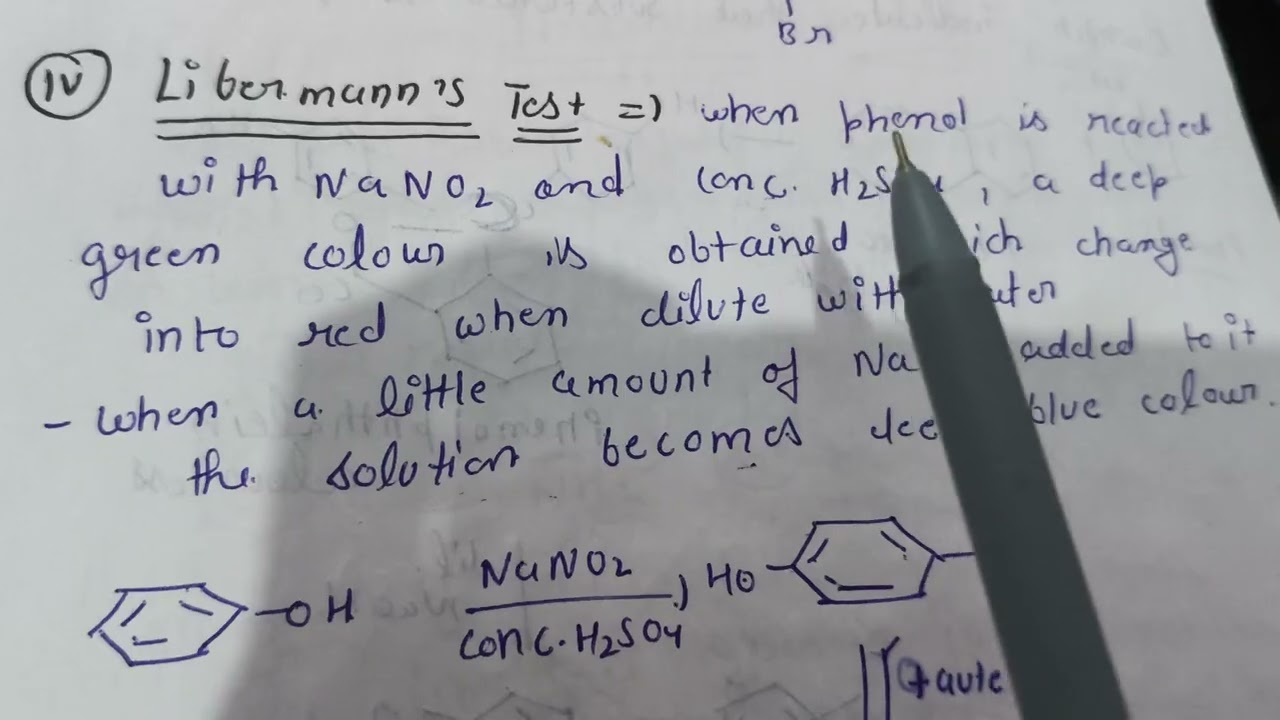 Br
(iv) Libermann's Test => when phenol is reacted
with NaNO2 and conc. H2S , a deep
green colour is obtained ich change
into red when dilute with ter
- when a little amount of Na added to it
the solution becomes dee blue colour.
-OH NaNO2 HO-
conc. H2SO4